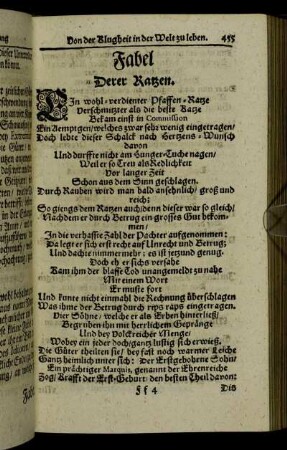 Von der Klugheit in der Welt zu leben. 455
Fabel
Derer Ratzen.
EIn wohl-verdienter Pfaffen-Ratze
Verschmitzter als die beste Katze
Bekam einst in Commission
Ein Aemptgen/ welches zwar sehr wenig eingetragen/
Doch lebte dieser Schalck nach Hertzens-Wunsch
davon
Und durffte nicht am Hunger-Tuche nagen/
Weil er so Treu als Redlichkeit
Vor langer Zeit
Schon aus dem Sinn geschlagen.
Durch Rauben wird man bald ansehnlich/ groß und
reich;
So giengs dem Ratzen auch/ denn dieser war so gleich/
Nachdem er durch Betrug ein grosses Gut bekom-
men/
In die verhaßte Zahl der Pachter aufgenommen:
Da legt er sich erst recht auf Unrecht und Betrug;
Und dachte nimmermehr: es ist jetzund genug.
Doch eh er sichs versahe
Kam ihm der blasse Tod unangemeldt zu nahe
Mit einem Wort
Er muste fort
Und konte nicht einmahl die Rechnung überschlagen
Was ihme der Betrug durch rips raps eingetragen.
Vier Söhne/ welche er als Erben hinterließ/
Begruben ihn mit herrlichem Gepränge
Und bey Volckreicher Menge/
Wobey ein jeder hochgantz lustig sich erwieß.
Die Güter theilten sie/ bey fast noch warmer Leiche
Gantz heimlich unter sich: Der Erstgebohrne Sohn/
Ein prächtiger Marquis, genannt der Ehrenreiche
Zog/ Krafft der Erst-Geburt/ den besten Theil davon:
Ff 4 Die